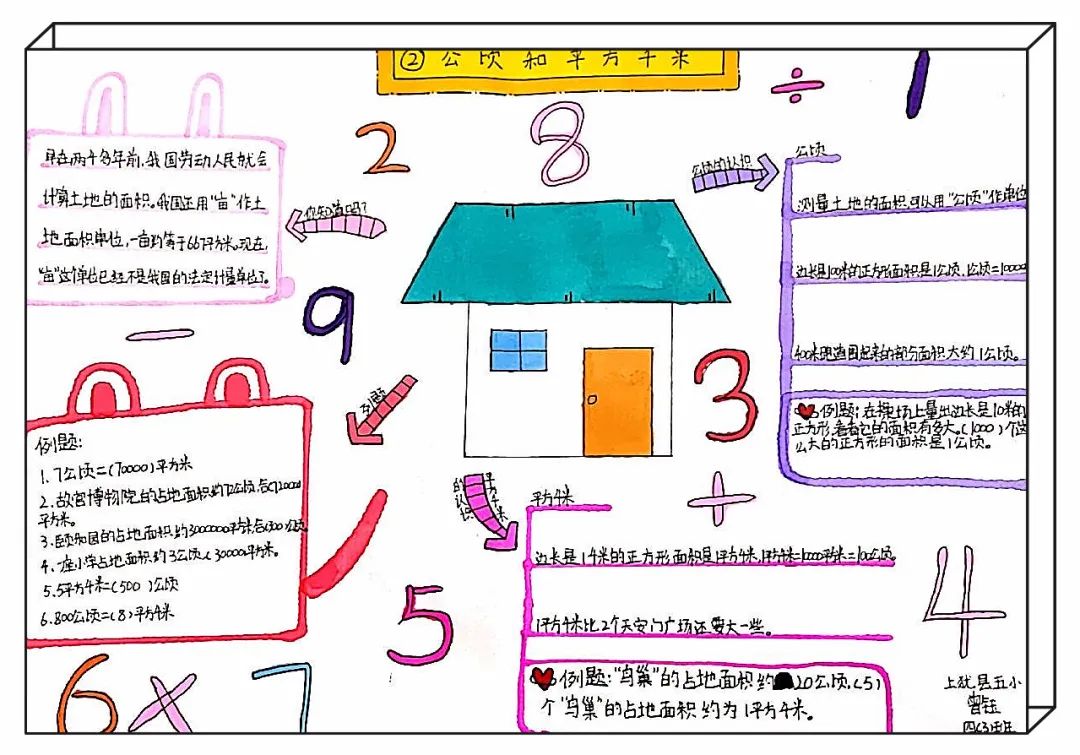 ②公顷和平方千米
早在两千多年前,我国劳动人民就会
计算土地的面积。我国还用“亩”作土
地面积单位,一亩约等于667平方米。现在,
“亩”这个单位已经不是我国的法定计量单位了。
你知道吗?
公顷的认识
公顷
测量土地的面积可以用“公顷”作单位
边长是100米的正方形面积是1公顷,1公顷=10000
400米跑道围起来的部分面积大约1公顷。
例题:在操场上量出边长是10米的
正方形,看看它的面积有多大。(1000)个这
么大的正方形的面积是1公顷。
例题
例题:
1.7公顷=(70000)平方米
2.故宫博物院的占地面积约72公顷合(720000
平方米。
3.颐和园的占地面积约3000000平方米合(300)公顷
4.一座小学占地面积约3公顷(30000平方米。
5.5平方千米=(500 )公顷
6.800公顷=(8)平方千米
平方千米的认识
平方千米
边长是1千米的正方形面积是1平方千米,1平方千米=1000平方米=100公顷。
1平方千米比2个天安门广场还要大一些。
例题:“鸟巢”的占地面积约20公顷,(5)
个“鸟巢”的占地面积约为1平方千米。
上犹县五小
曾钰
四(3)班
1
2
3
4
5
6
7
8
9